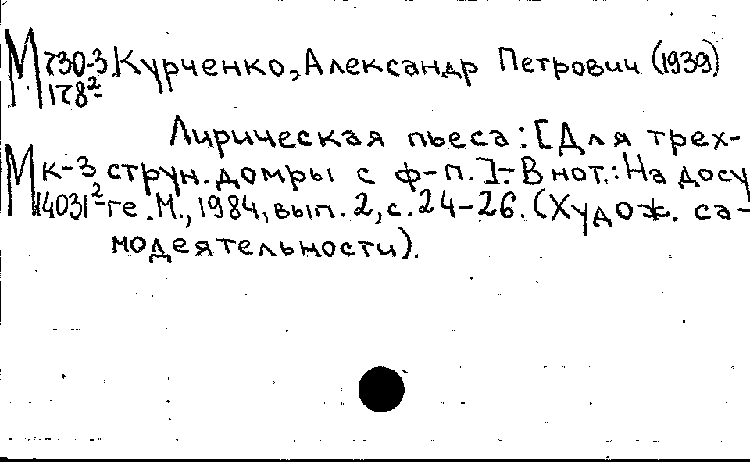 М 730-3 Курченко, Александр Петрович (1939)
178²
Лирическая пьеса: [Для трех-
М к-3 струн. домры с ф-п.].- В нот.: На досу
14031² ге. М., 1984, вып. 2, с. 24-26. (Худож. са-
модеятельности).